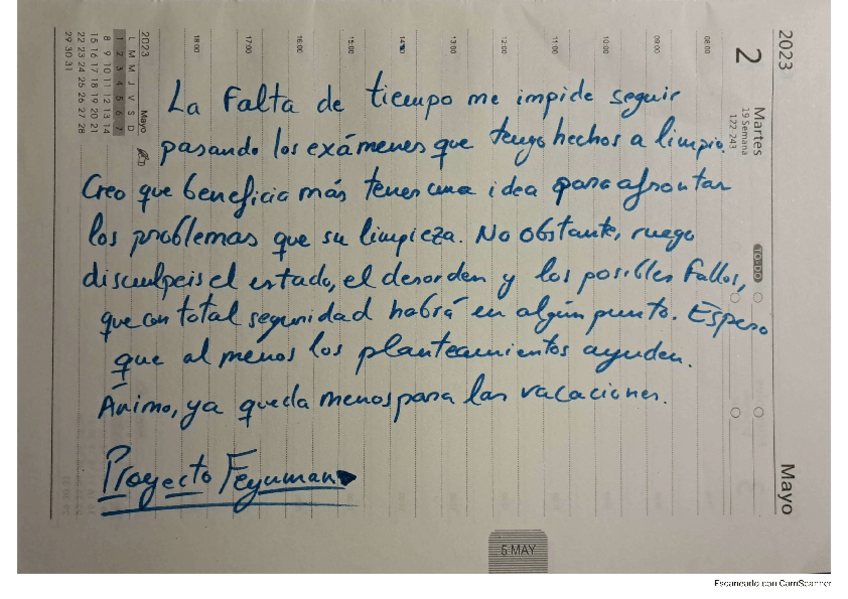 La Falta de tiempo me impide seguir
pasando los exámenes que tengo hechos a limpio.
Creo que beneficia más tener una idea para afrontar
los problemas que su limpieza. No obstante, ruego
disculpeis el estado, el desorden y los posibles fallos,
que con total seguridad habrá en algún punto. Espero
que al menos los planteamientos ayuden.
Ánimo, ya queda menos para las vacaciones.
Proyecto Feynman
2023
2
Martes
19 Semana
122-243
TO-DO
Mayo
08:00
09:00
10:00
11:00
12:00
13:00
14:00
15:00
16:00
17:00
18:00
2023 Mayo
L M M J V S D
1 2 3 4 5 6 7
8 9 10 11 12 13 14
15 16 17 18 19 20 21
22 23 24 25 26 27 28
29 30 31
5 MAY
Escaneado con CamScanner